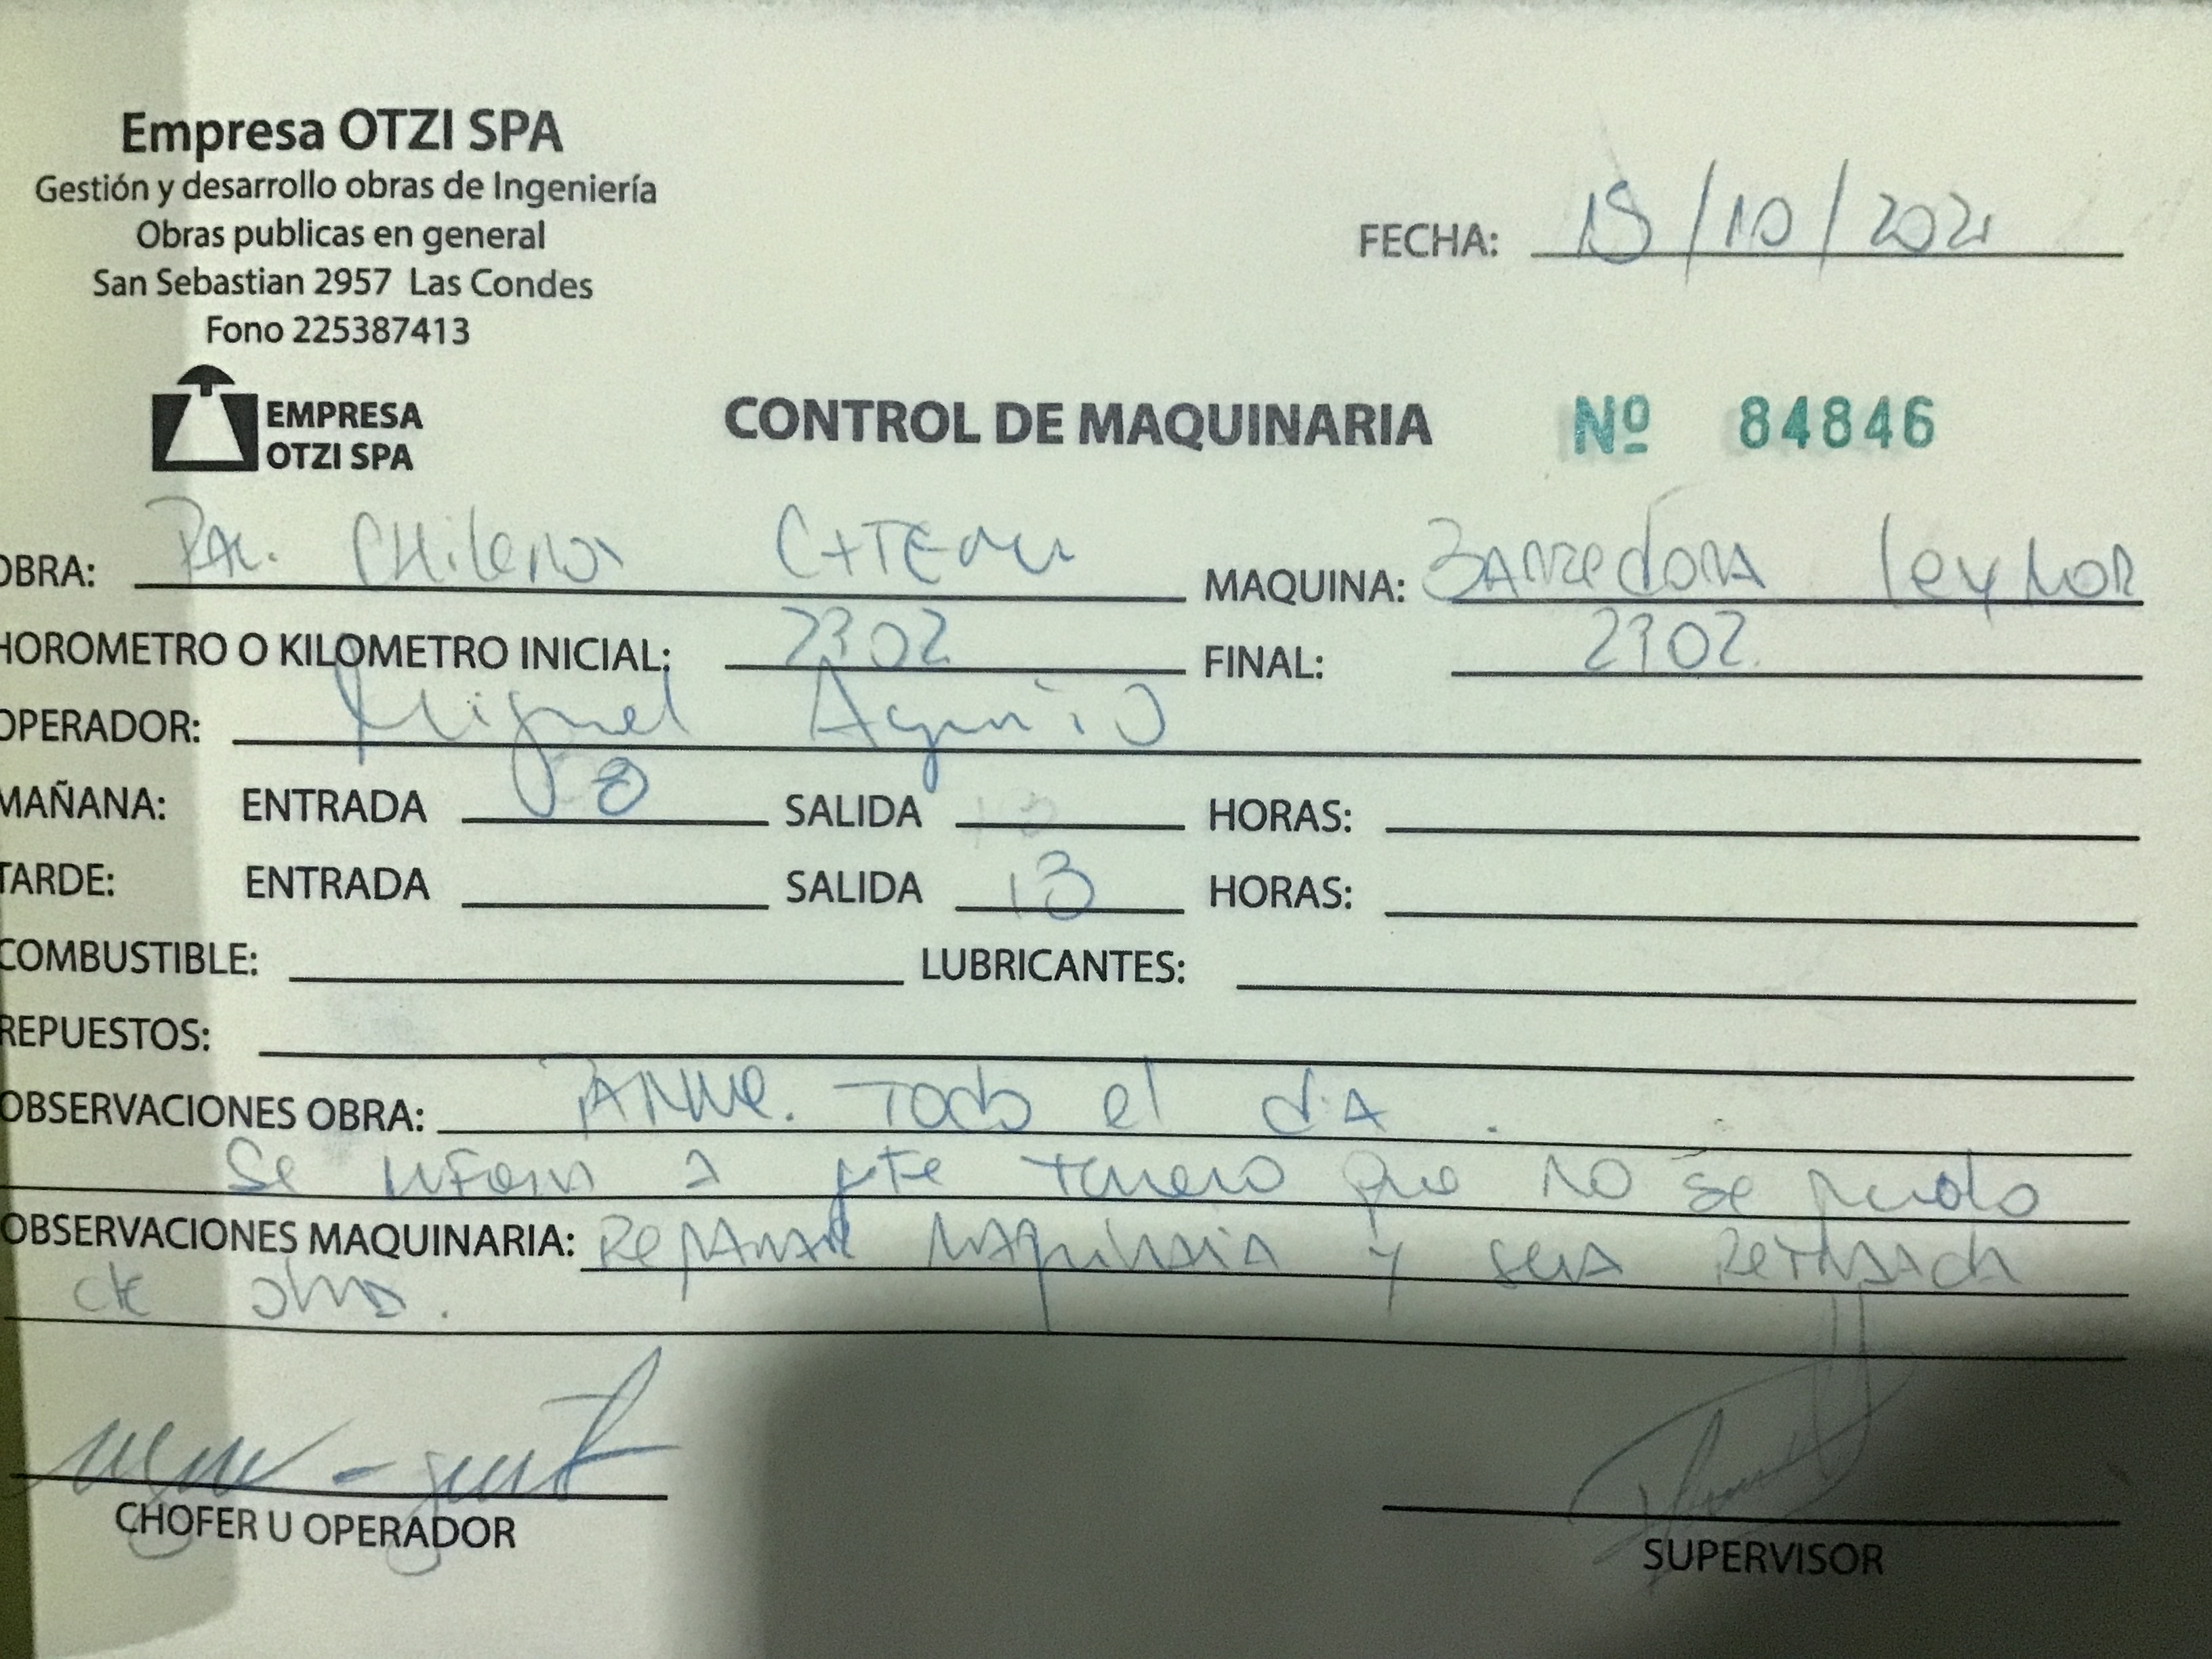 Empresa OTZI SPA
Gestión y desarrollo obras de Ingeniería
Obras publicas en general
San Sebastian 2957 Las Condes
Fono 225387413
FECHA: 15/10/2021
EMPRESA
OTZI SPA
CONTROL DE MAQUINARIA Nº 84846
OBRA: CHilena MAQUINA: BARREdORA leyMOR
HOROMETRO O KILOMETRO INICIAL: 2302 FINAL: 2302.
OPERADOR: Miguel
MAÑANA: ENTRADA 8 SALIDA HORAS:
TARDE: ENTRADA SALIDA 13 HORAS:
COMBUSTIBLE: LUBRICANTES:
REPUESTOS:
OBSERVACIONES OBRA: PANNe. Todo el diA.
Se iNFormA a jefe que NO se pudo
OBSERVACIONES MAQUINARIA: RepARAR MAquiNAriA y serA RetirAda
de obra.
CHOFER U OPERADOR
SUPERVISOR